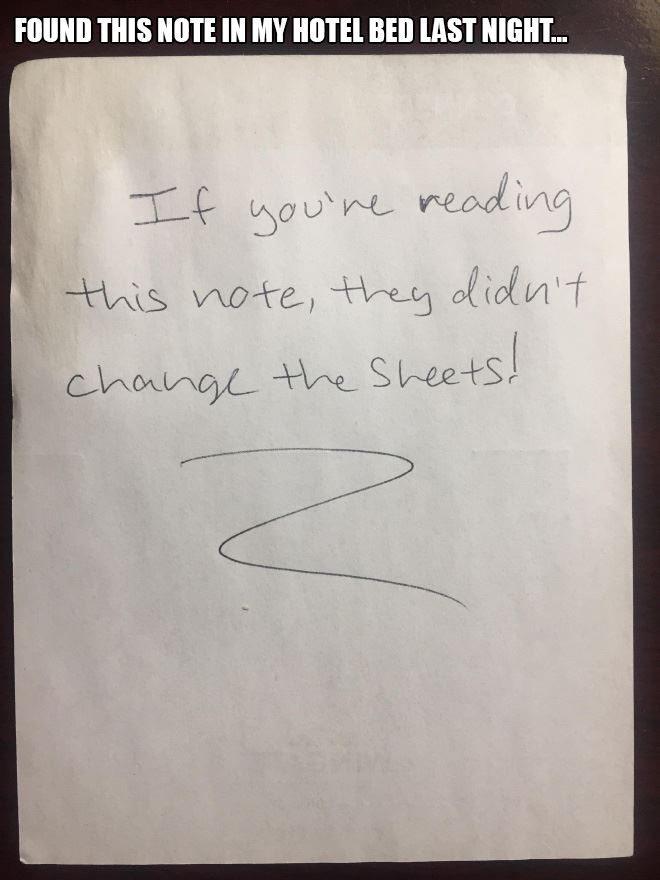 FOUND THIS NOTE IN MY HOTEL BED LAST NIGHT...
If you're reading
this note, they didn't
change the sheets!